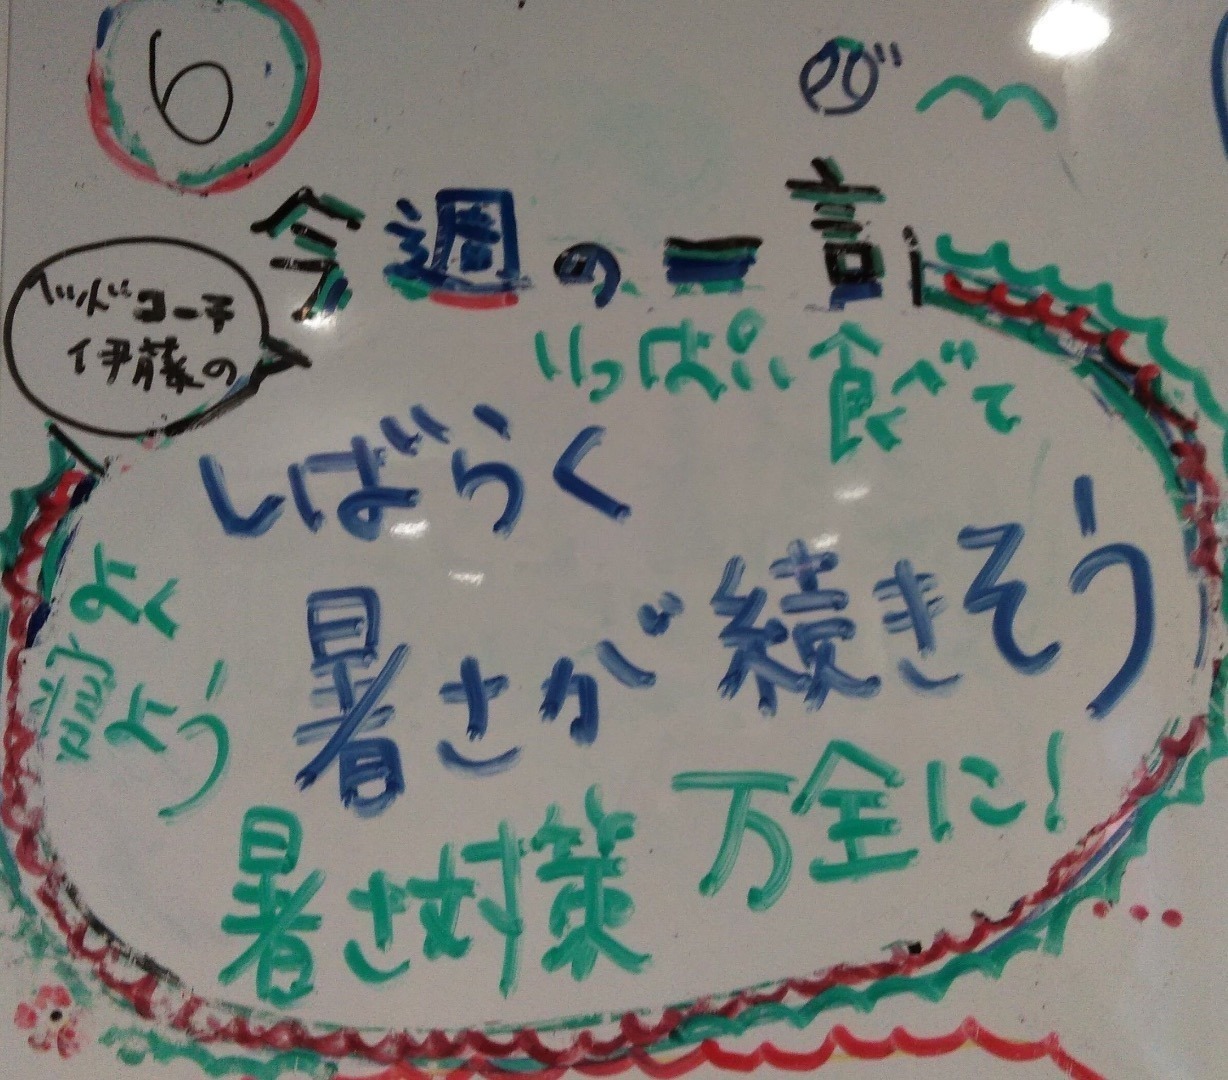 6
今週の一言
ベッドコー子
伊藤の
いっぱい食べて
しばらく
暑さが続きそう
よく
寝よう
暑さ対策 万全に!